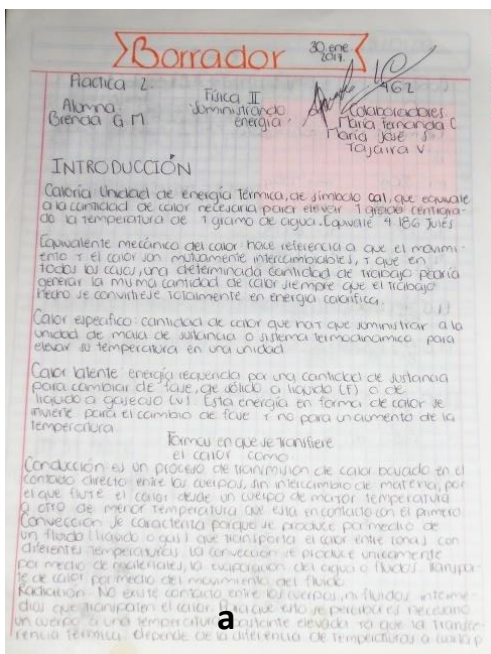 Borrador
30 ene 2019.
Practica 2.
Física II
462
Alumna:
Suministrando
Colaboradores:
Brenda G M.
energía.
Maria Fernanda C
Maria José S
Tajaira V
INTRODUCCIÓN
Caloría Unidad de energía Térmica, de símbolo cal, que equivale
a la cantidad de calor necesaria para elevar 1 grado centigra-
do la temperatura de 1 gramo de agua. Equivale 4.186 Jules
Equivalente mecánico del calor: hace referencia a que el movimi-
ento y el calor son mutuamente intercambiables, y que en
todos los casos, una determinada cantidad de trabajo podría
generar la misma cantidad de calor siempre que el trabajo
hecho se convirtiese totalmente en energía calorífica.
Calor especifico: cantidad de calor que hay que suministrar a la
unidad de masa de sustancia o sistema termodinamico para
elevar su temperatura en una unidad
Calor latente energía requerida por una cantidad de sustancia
para cambiar de fase, de sólido a liquido (f) o de
liquido a gaseoso (v). Esta energía en forma de calor se
invierte para el cambio de fase y no para un aumento de la
temperatura.
Formas en que se transfiere
el calor como:
Conducción es un proceso de transmision de calor basado en el
contacto directo entre los cuerpos, sin intercambio de materia, por
el que fluye el calor desde un cuerpo de mayor temperatura
a otro de menor temperatura que esta en contacto con el primero
Convección Se caracteriza porque se produce por medio de
un fluido (liquido o gas) que transporta el calor entre zonas con
diferentes temperaturas. La convección se produce unicamente
por medio de materiales, la evaporación del agua o fluidos. Transpor-
te de calor por medio del movimiento del fluido
Radiación No existe contacto entre los cuerpos, ni fluidos interme-
dios que transporten el calor. Para que esto se perciba es necesario
un cuerpo a una temperatura bastante elevada ya que la transfe-
rencia térmica depende de la diferencia de temperaturas a
a